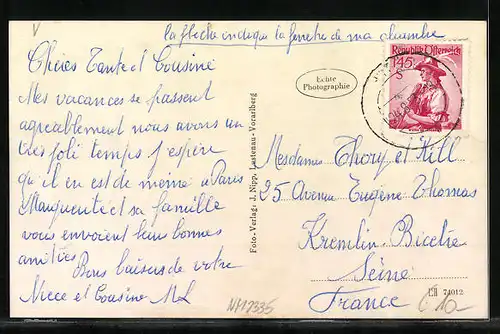 la flecla indique la fenetre de ma chambre
Chères Tante et Cousine
Mes vacances se passent
agreablement nous avons un
très joli temps j'espère
qu'il en est de meme à Paris
Marguerite et sa famille
vous envoient leurs bonnes
amitiés
Bons baisers de votre
Niece et Cousine ML
NM7335
Foto-Verlag: J. Nipp, Lustenau-Vorarlberg
Echte
Photographie
Republik Österreich
1.45
S
Mesdames Thory et Kill
25 Avenue Eugène Thomas
Kremlin-Bicetre
Seine
France
74012